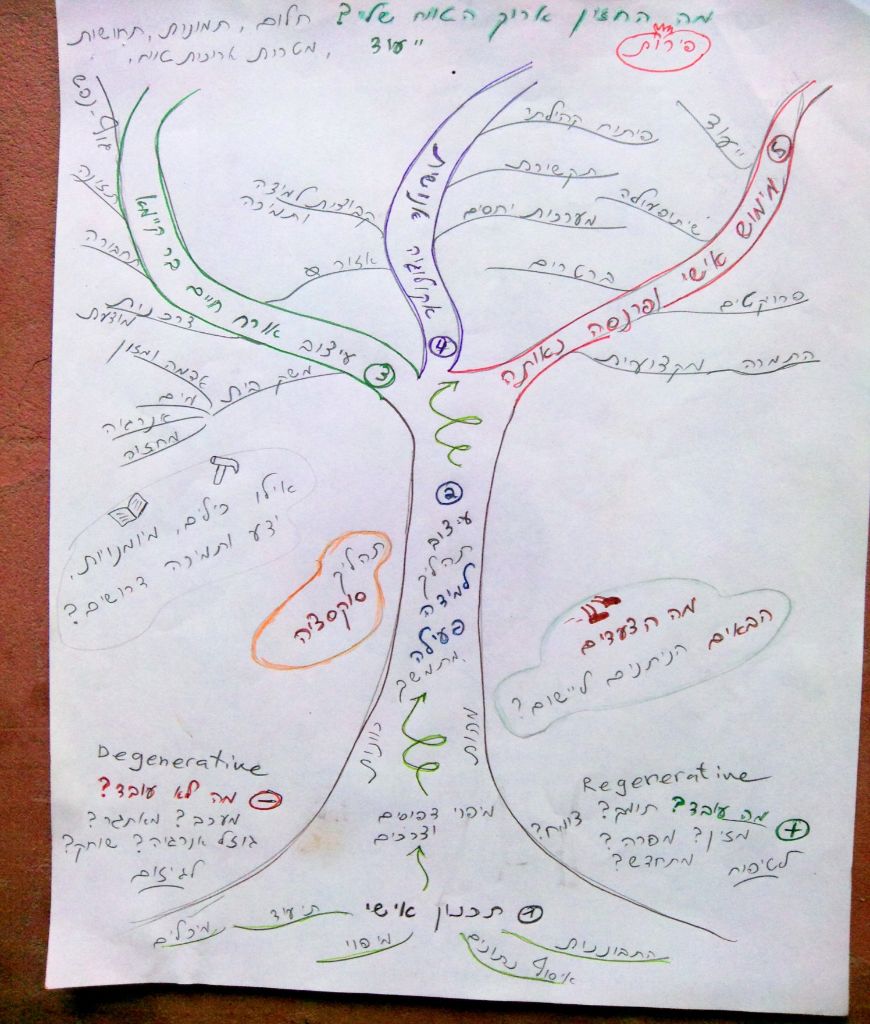 מה החזון ארוך הטווח שלי? חלום, תמונות, תחושות
ייעוד, מטרות ארוכות טווח,
פירות
גוף-נפש
תזונה
תחבורה
צרכנות
מודעת
משק בית
אדמה ומזון
מים
אנרגיה
מחזור
עיצוב אורח חיים בר קיימא
3
קבוצות למידה
ותמיכה
אזור
פיתוח קהילתי
תקשורת
מערכות יחסים
אקולוגיה אנושית
4
ייעוד
שיתופי פעולה
ברטרים
פרויקטים
התמרה מקצועית
מימוש אישי ופרנסה נאותה
5
2
עיצוב
תהליך
למידה
פעילה
מתמשך.
אילו כילים, מיומנויות,
ידע ותמיכה דרושים?
תהליך
סוקסציה
מה הצעדים
הבאים הניתנים ליישום?
כוונות
מהות
Degenerative
מה לא עובד?
מעכב? מאתגר?
גוזל אנרגיה? שוחק?
לגיזום
Regenerative
מה עובד? תומך?
מזין? מפרה? צומח?
מתחדש?
לטיפוח
מיפוי דפוסים
וצרכים
תכנון אישי 1
תיעוד
מיכלים
מיפוי
איסוף נתונים
התבוננות